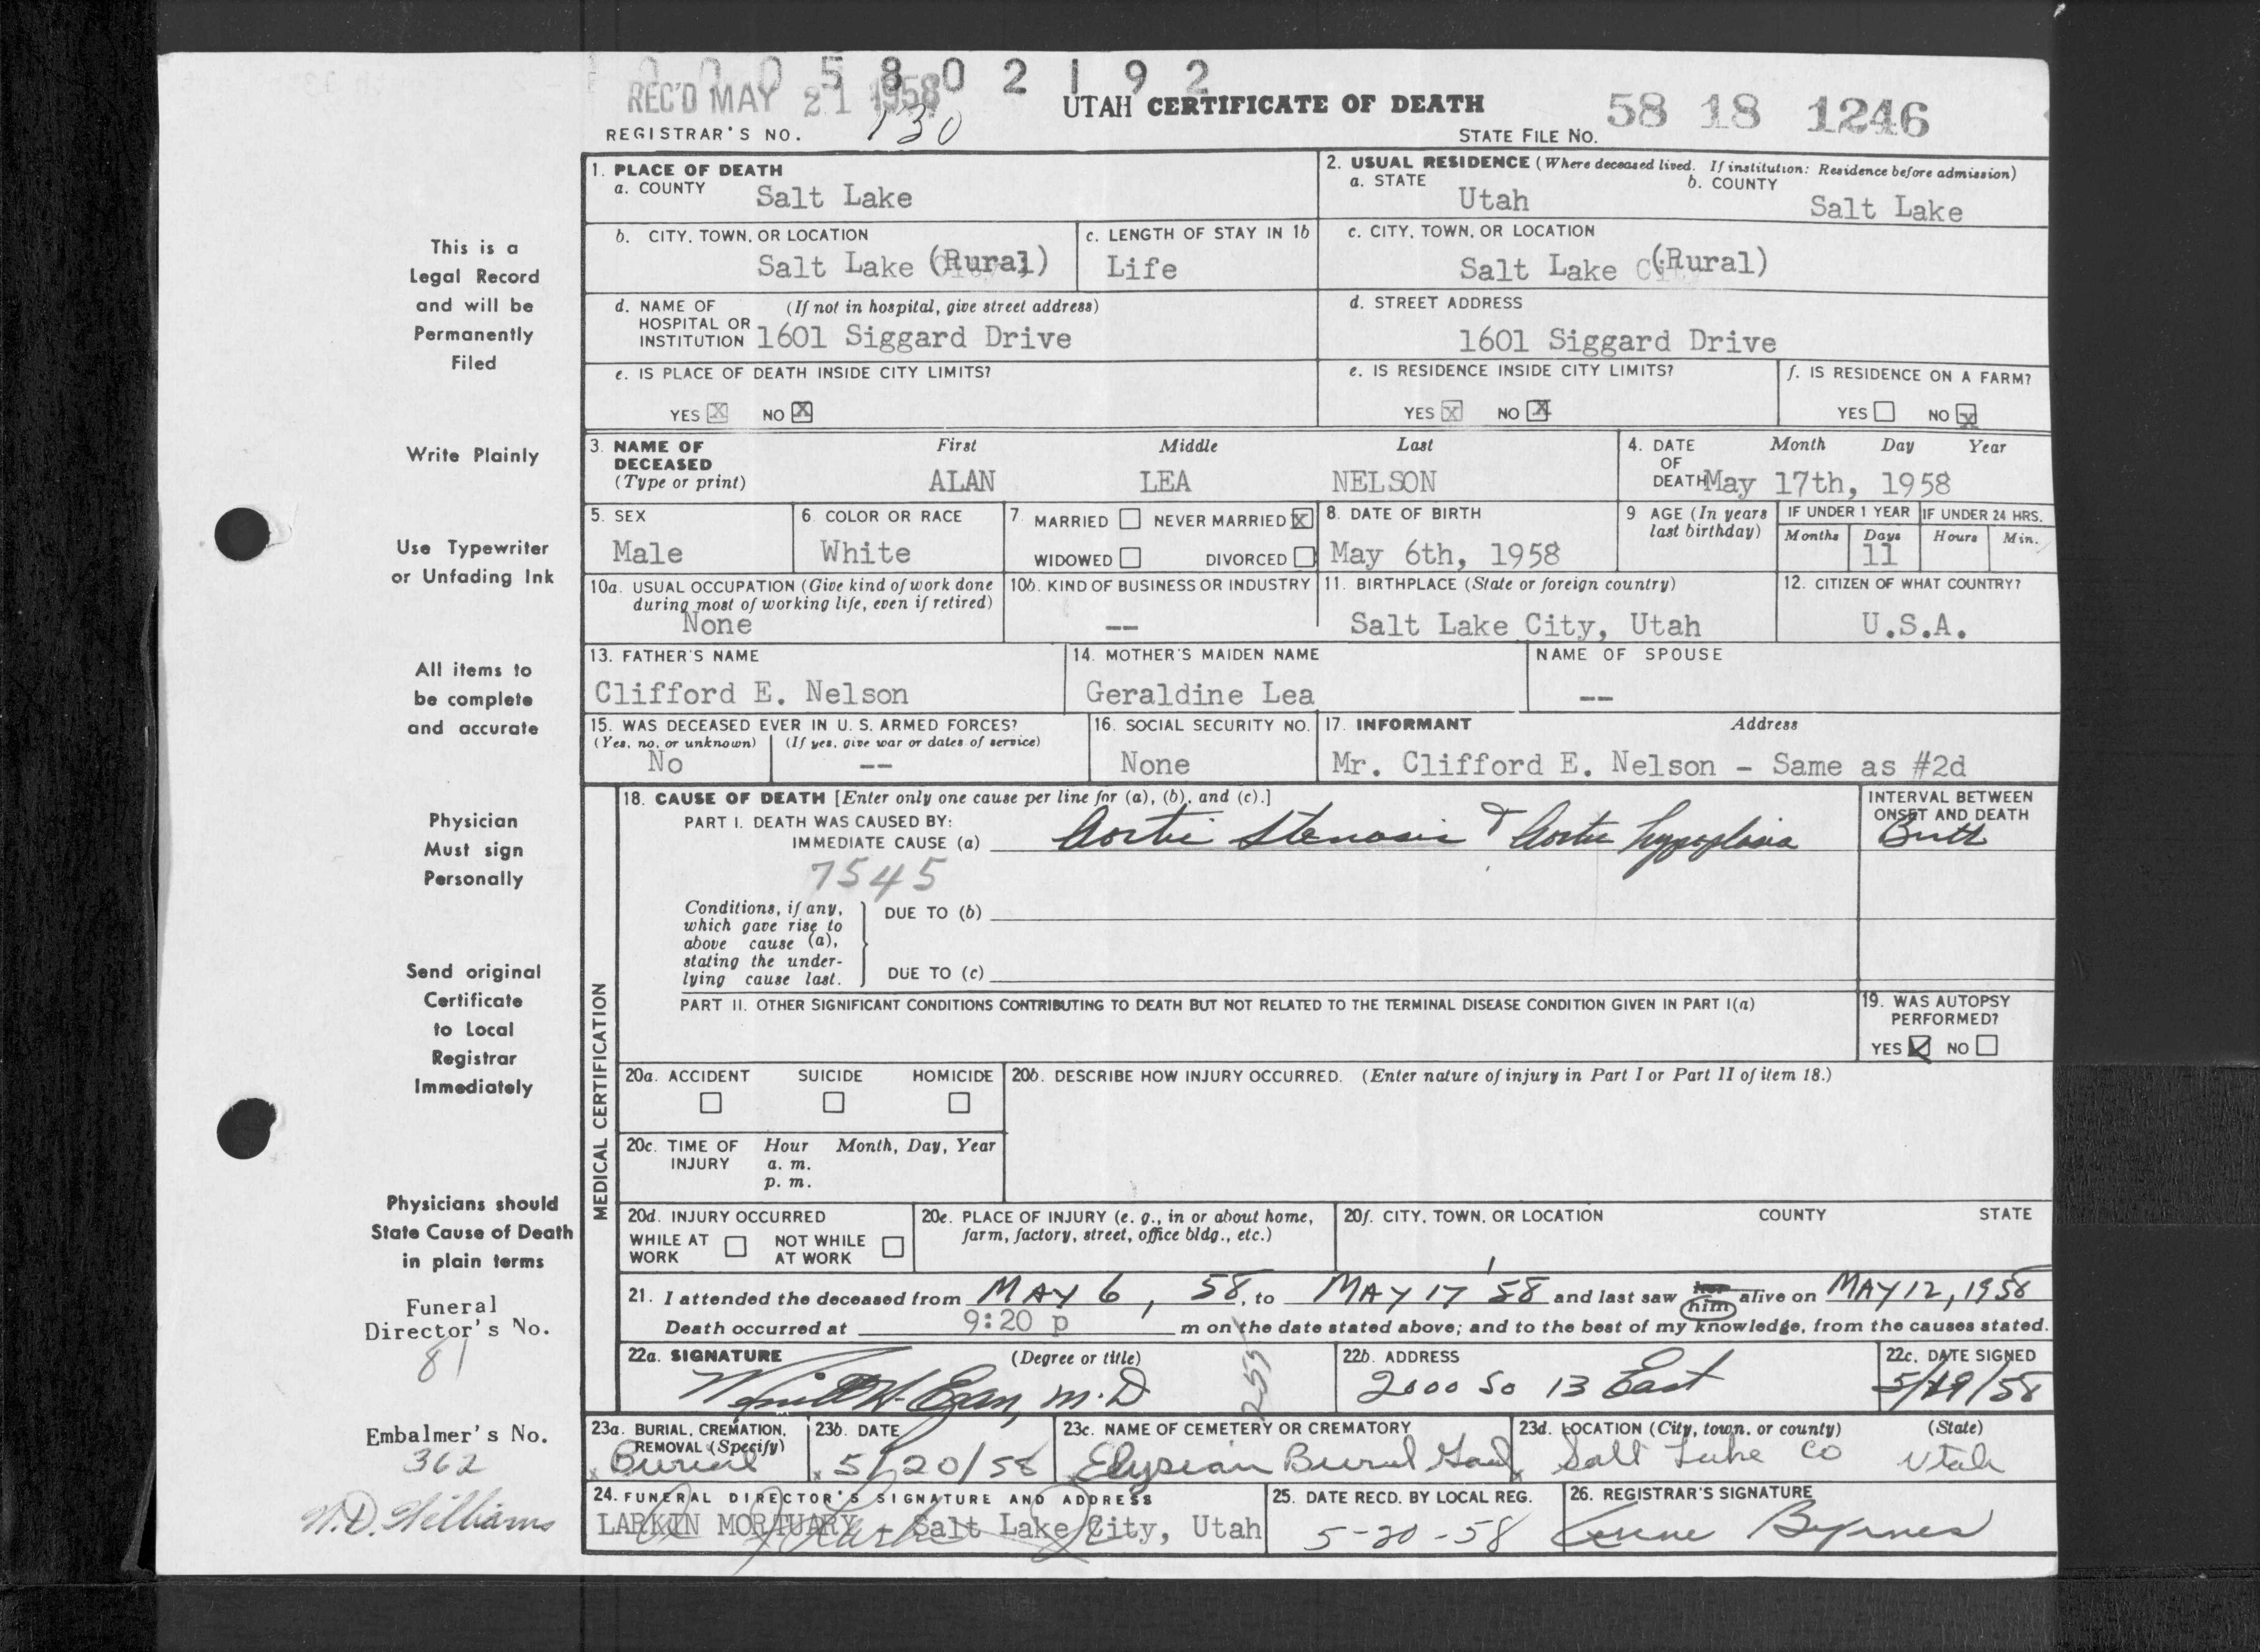 0 0 0 5 8 0 2 1 9 2
REC'D MAY 21 1958
UTAH CERTIFICATE OF DEATH
58 18 1246
REGISTRAR'S NO. 130
STATE FILE NO.
1. PLACE OF DEATH
a. COUNTY Salt Lake
2. USUAL RESIDENCE (Where deceased lived. If institution: Residence before admission)
a. STATE Utah
b. COUNTY Salt Lake
b. CITY, TOWN, OR LOCATION
Salt Lake (Rural)
c. LENGTH OF STAY IN 1b
Life
c. CITY, TOWN, OR LOCATION
Salt Lake (Rural)
d. NAME OF (If not in hospital, give street address)
HOSPITAL OR
INSTITUTION 1601 Siggard Drive
d. STREET ADDRESS
1601 Siggard Drive
e. IS PLACE OF DEATH INSIDE CITY LIMITS?
YES X NO X
e. IS RESIDENCE INSIDE CITY LIMITS?
YES X NO X
f. IS RESIDENCE ON A FARM?
YES NO X
3. NAME OF First Middle Last
DECEASED
(Type or print) ALAN LEA NELSON
4. DATE Month Day Year
OF
DEATH May 17th, 1958
5. SEX
Male
6. COLOR OR RACE
White
7. MARRIED NEVER MARRIED X
WIDOWED DIVORCED
8. DATE OF BIRTH
May 6th, 1958
9 AGE (In years
last birthday)
IF UNDER 1 YEAR
Months Days
11
IF UNDER 24 HRS.
Hours Min.
10a. USUAL OCCUPATION (Give kind of work done
during most of working life, even if retired)
None
10b. KIND OF BUSINESS OR INDUSTRY
--
11. BIRTHPLACE (State or foreign country)
Salt Lake City, Utah
12. CITIZEN OF WHAT COUNTRY?
U.S.A.
13. FATHER'S NAME
Clifford E. Nelson
14. MOTHER'S MAIDEN NAME
Geraldine Lea
NAME OF SPOUSE
--
15. WAS DECEASED EVER IN U. S. ARMED FORCES?
(Yes, no, or unknown) (If yes, give war or dates of service)
No --
16. SOCIAL SECURITY NO.
None
17. INFORMANT Address
Mr. Clifford E. Nelson - Same as #2d
MEDICAL CERTIFICATION
18. CAUSE OF DEATH [Enter only one cause per line for (a), (b), and (c).]
PART I. DEATH WAS CAUSED BY:
IMMEDIATE CAUSE (a) Aortic Stenosis & Aortic hypoplasia
INTERVAL BETWEEN
ONSET AND DEATH
Birth
7545
Conditions, if any,
which gave rise to
above cause (a),
stating the under-
lying cause last.
DUE TO (b)
DUE TO (c)
PART II. OTHER SIGNIFICANT CONDITIONS CONTRIBUTING TO DEATH BUT NOT RELATED TO THE TERMINAL DISEASE CONDITION GIVEN IN PART I(a)
19. WAS AUTOPSY
PERFORMED?
YES X NO
20a. ACCIDENT SUICIDE HOMICIDE
20b. DESCRIBE HOW INJURY OCCURRED. (Enter nature of injury in Part I or Part II of item 18.)
20c. TIME OF Hour Month, Day, Year
INJURY a. m.
p. m.
20d. INJURY OCCURRED
WHILE AT NOT WHILE
WORK AT WORK
20e. PLACE OF INJURY (e. g., in or about home,
farm, factory, street, office bldg., etc.)
20f. CITY, TOWN, OR LOCATION COUNTY STATE
21. I attended the deceased from MAY 6, 58, to MAY 17 58 and last saw her him alive on MAY 12, 1958
Death occurred at 9:20 p m on the date stated above; and to the best of my knowledge, from the causes stated.
22a. SIGNATURE (Degree or title)
Merrill H. Egan, M.D
255
22b. ADDRESS
2000 So 13 East
22c. DATE SIGNED
5/19/58
23a. BURIAL, CREMATION,
REMOVAL (Specify)
Burial
23b. DATE
5/20/58
23c. NAME OF CEMETERY OR CREMATORY
Elysian Burial Gard
23d. LOCATION (City, town, or county) (State)
Salt Lake Co Utah
24. FUNERAL DIRECTOR'S SIGNATURE AND ADDRESS
LARKIN MORTUARY - Salt Lake City, Utah
25. DATE RECD. BY LOCAL REG.
5-20-58
26. REGISTRAR'S SIGNATURE
Byrnes
This is a
Legal Record
and will be
Permanently
Filed
Write Plainly
Use Typewriter
or Unfading Ink
All items to
be complete
and accurate
Physician
Must sign
Personally
Send original
Certificate
to Local
Registrar
Immediately
Physicians should
State Cause of Death
in plain terms
Funeral
Director's No.
81
Embalmer's No.
362
W.D. Williams